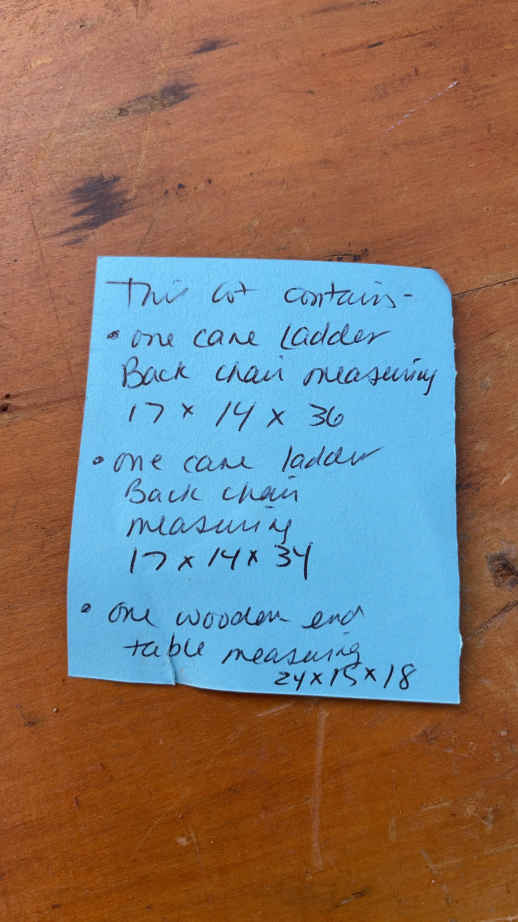 This lot contains-
• one cane ladder
Back chair measuring
17 x 14 x 36
• one cane ladder
Back chair
measuring
17 x 14 x 34
• one wooden end
table measuring
24 x 15 x 18